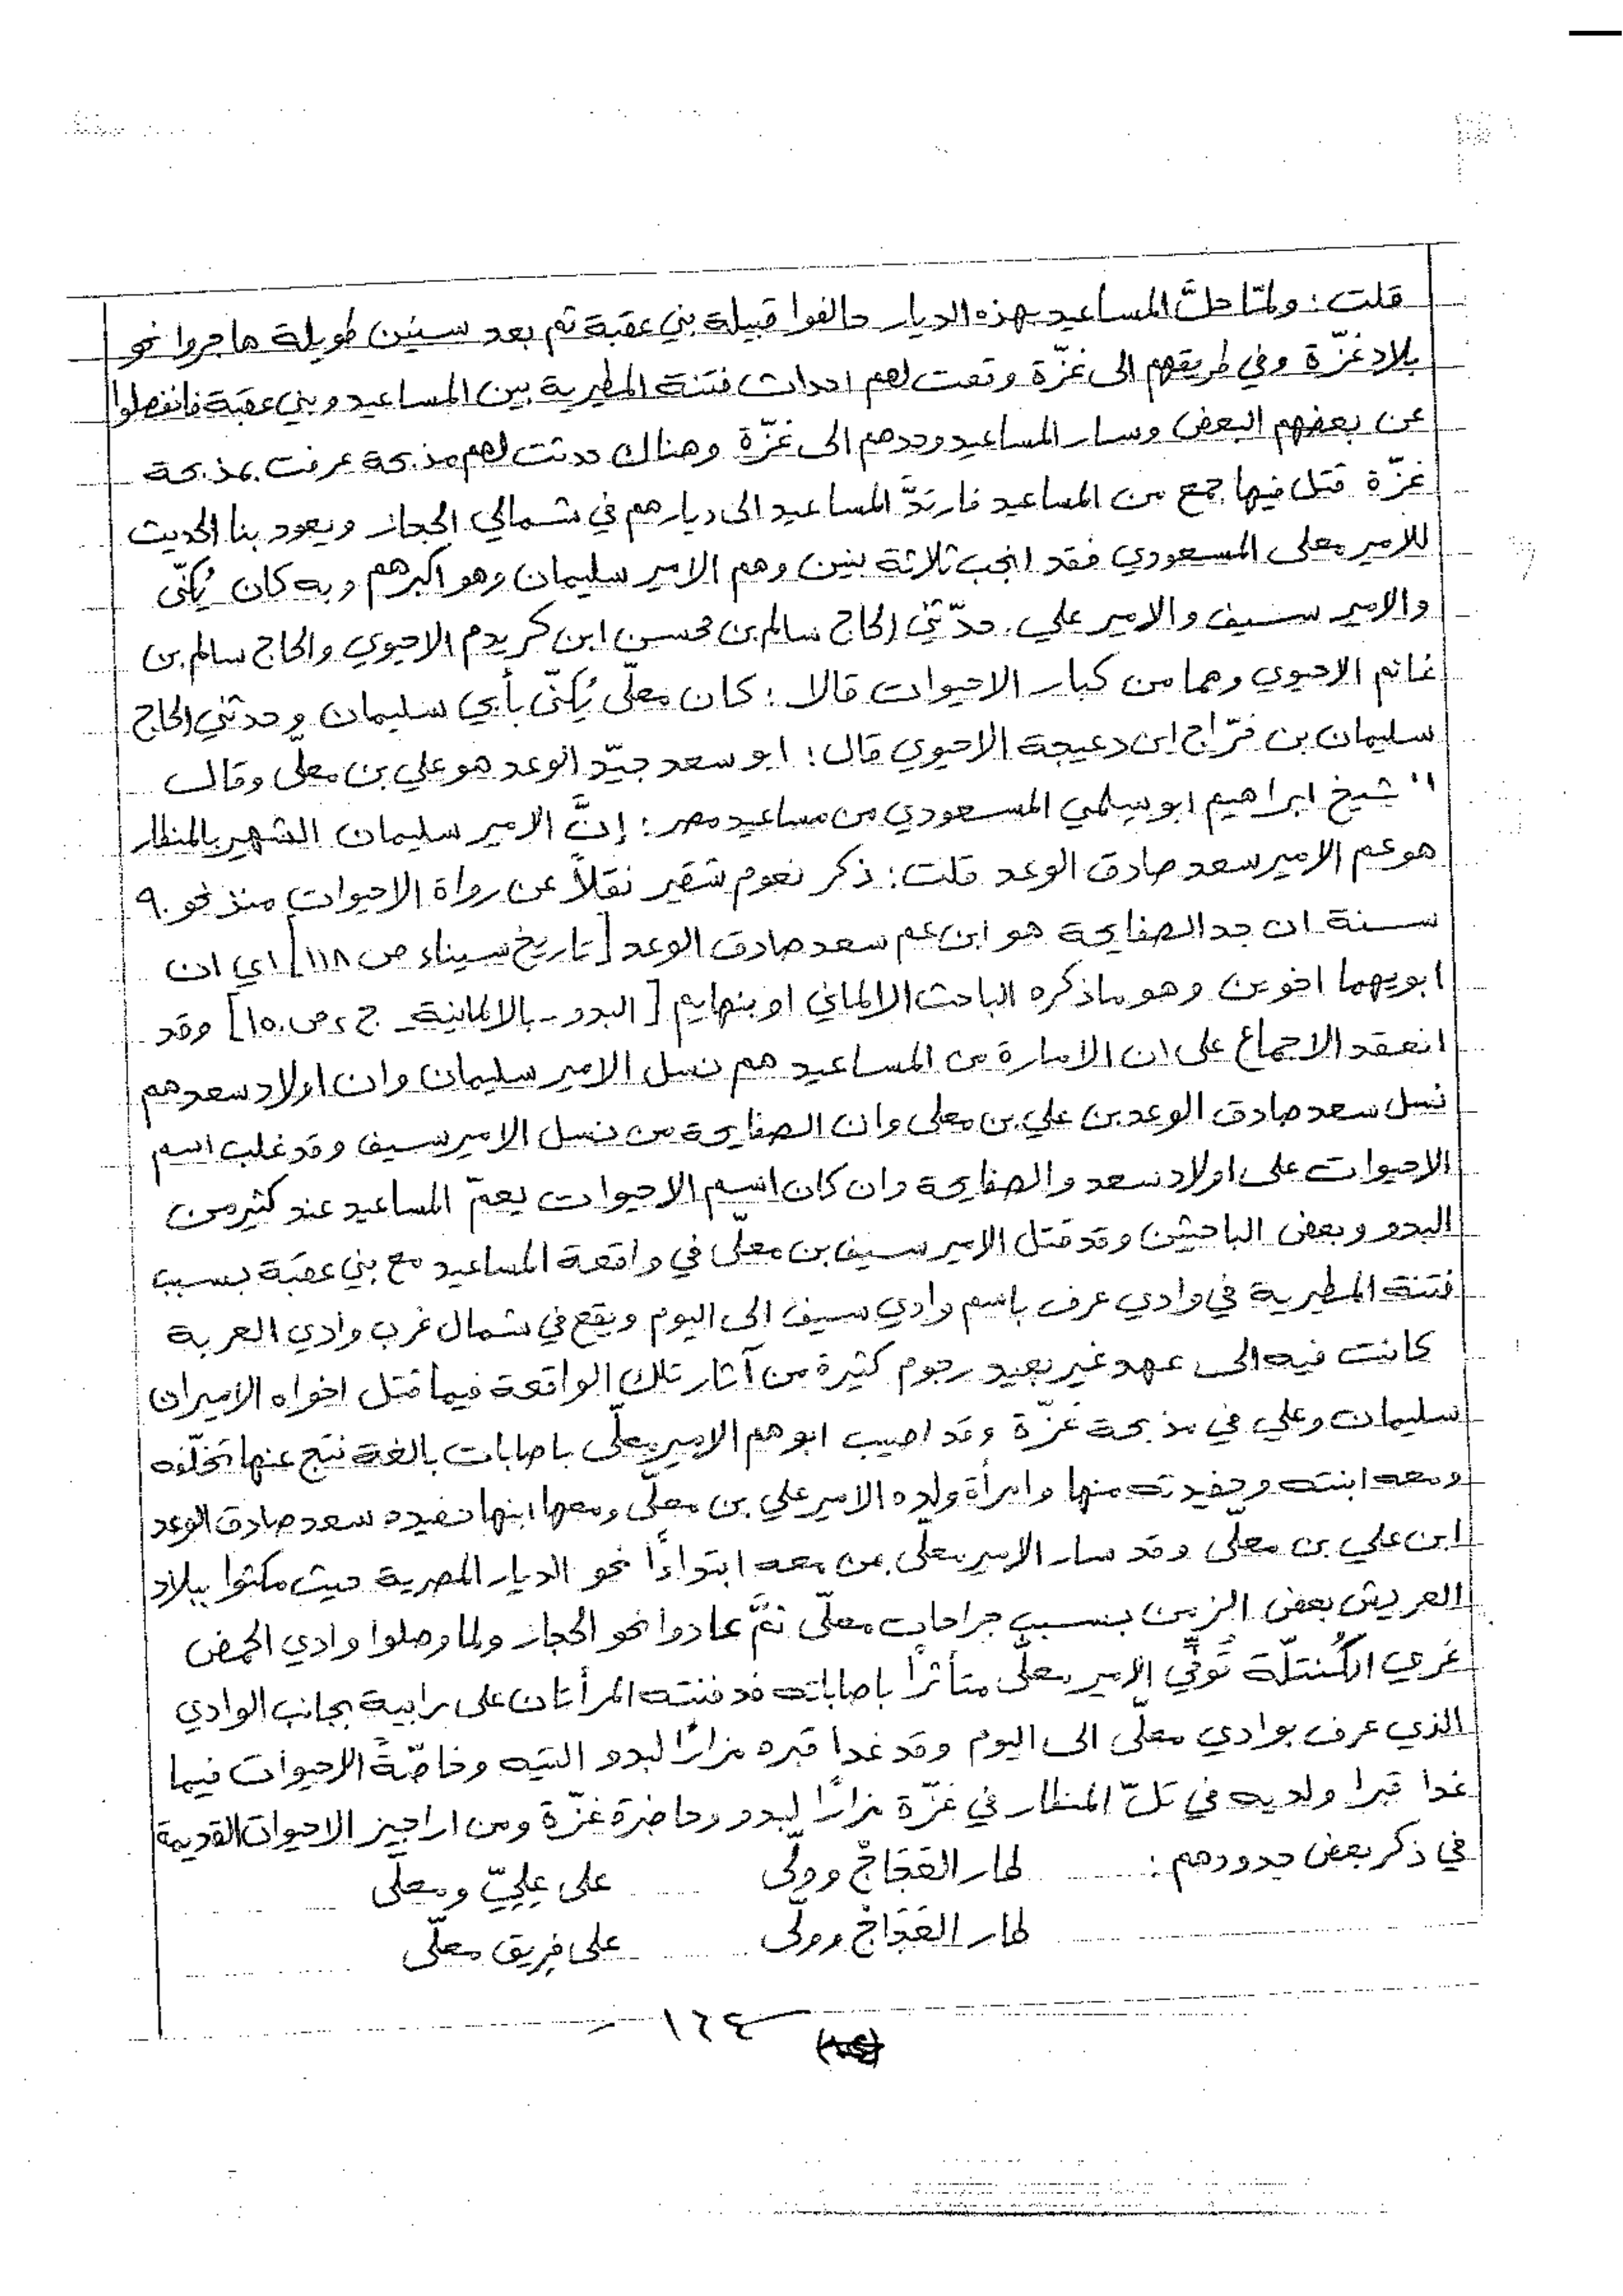 قلت: ولمّا حلَّ المساعيد بهذه الديار حالفوا قبيلة بني عقبة ثم بعد سنين طويلة هاجروا نحو
بلاد غزّة وفي طريقهم الى غزّة وقعت لهم احداث فتنة المطيرية بين المساعيد وبني عقبة فانفصلوا
عن بعضهم البعض وسار المساعيد وحدهم الى غزّة وهناك حدثت لهم مذبحة عرفت بمذبحة
غزّة قتل فيها جمع من المساعيد فارتدَّ المساعيد الى ديارهم في شمالي الحجاز ويعود بنا الحديث
للامير معلى المسعودي فقد انجب ثلاثة بنين وهم الامير سليمان وهو اكبرهم وبه كان يُكنّى
والامير سيف والامير علي. حدّثني الحاج سالم بن محسن ابن كريدم الاحيوي والحاج سالم بن
غانم الاحيوي وهما من كبار الاحيوات قالا: كان معلّى يُكنّى بأبي سليمان وحدثني الحاج
سليمان بن فرّاج ابن دعيجة الاحيوي قال: ابو سعد جيّد الوعد هو علي بن معلّى وقال
الشيخ ابراهيم ابو سلمي المسعودي من مساعيد مصر: إنَّ الامير سليمان الشهير بالمنطار
هو عم الامير سعد صادق الوعد قلت: ذكر نعوم شقير نقلاً عن رواة الاحيوات منذ نحو ٩٠
سنة ان جد الصفايحة هو ابن عم سعد صادق الوعد [تاريخ سيناء ص ١١٨] اي ان
ابويهما اخوين وهو ما ذكره الباحث الالماني اوبنهايم [البدو - بالالمانية - ج ٢ ص ١٥٠] وقد
انعقد الاجماع على ان الامارة من المساعيد هم نسل الامير سليمان وان اولاد سعد هم
نسل سعد صادق الوعد بن علي بن معلى وان الصفايحة من نسل الامير سيف وقد غلب اسم
الاحيوات على اولاد سعد والصفايحة وان كان اسم الاحيوات يعمّ المساعيد عند كثير من
البدو وبعض الباحثين وقد قتل الامير سيف بن معلّى في واقعة المساعيد مع بني عقبة بسبب
فتنة المطيرية في وادي عرف باسم وادي سيف الى اليوم ويقع في شمال غرب وادي العربة
كانت فيه الى عهد غير بعيد رجوم كثيرة من آثار تلك الواقعة فيما قتل اخواه الاميران
سليمان وعلي في مذبحة غزّة وقد اصيب ابوهم الامير معلّى باصابات بالغة نتج عنها تخلّفه
ومعه ابنته وحفيدته منها وامرأة ولده الامير علي بن معلّى ومعها ابنها حفيده سعد صادق الوعد
ابن علي بن معلّى وقد سار الامير معلّى بمن معه ابتداءًا نحو الديار المصرية حيث مكثوا ببلاد
العريش بعض الزمن بسبب جراحات معلّى ثمَّ عادوا نحو الحجاز ولما وصلوا وادي الحمض
غربي الكُنتلّة تُوفّي الامير معلّى متأثراً باصاباته فدفنته المرأتان على رابية بجانب الوادي
الذي عرف بوادي معلّى الى اليوم وقد غدا قبره مزارًا لبدو التيه وخاصّةً الاحيوات فيما
غدا قبرا ولديه في تلّ المنطار في غزّة مزارًا لبدو وحاضرة غزّة ومن اراجيز الاحيوات القديمة
في ذكر بعض جدودهم: طار العَجَاجْ وولّى على عِليّ ومعلّى
طار العَجَاجْ وولّى على فِريق معلّى
- ١٦٤ -